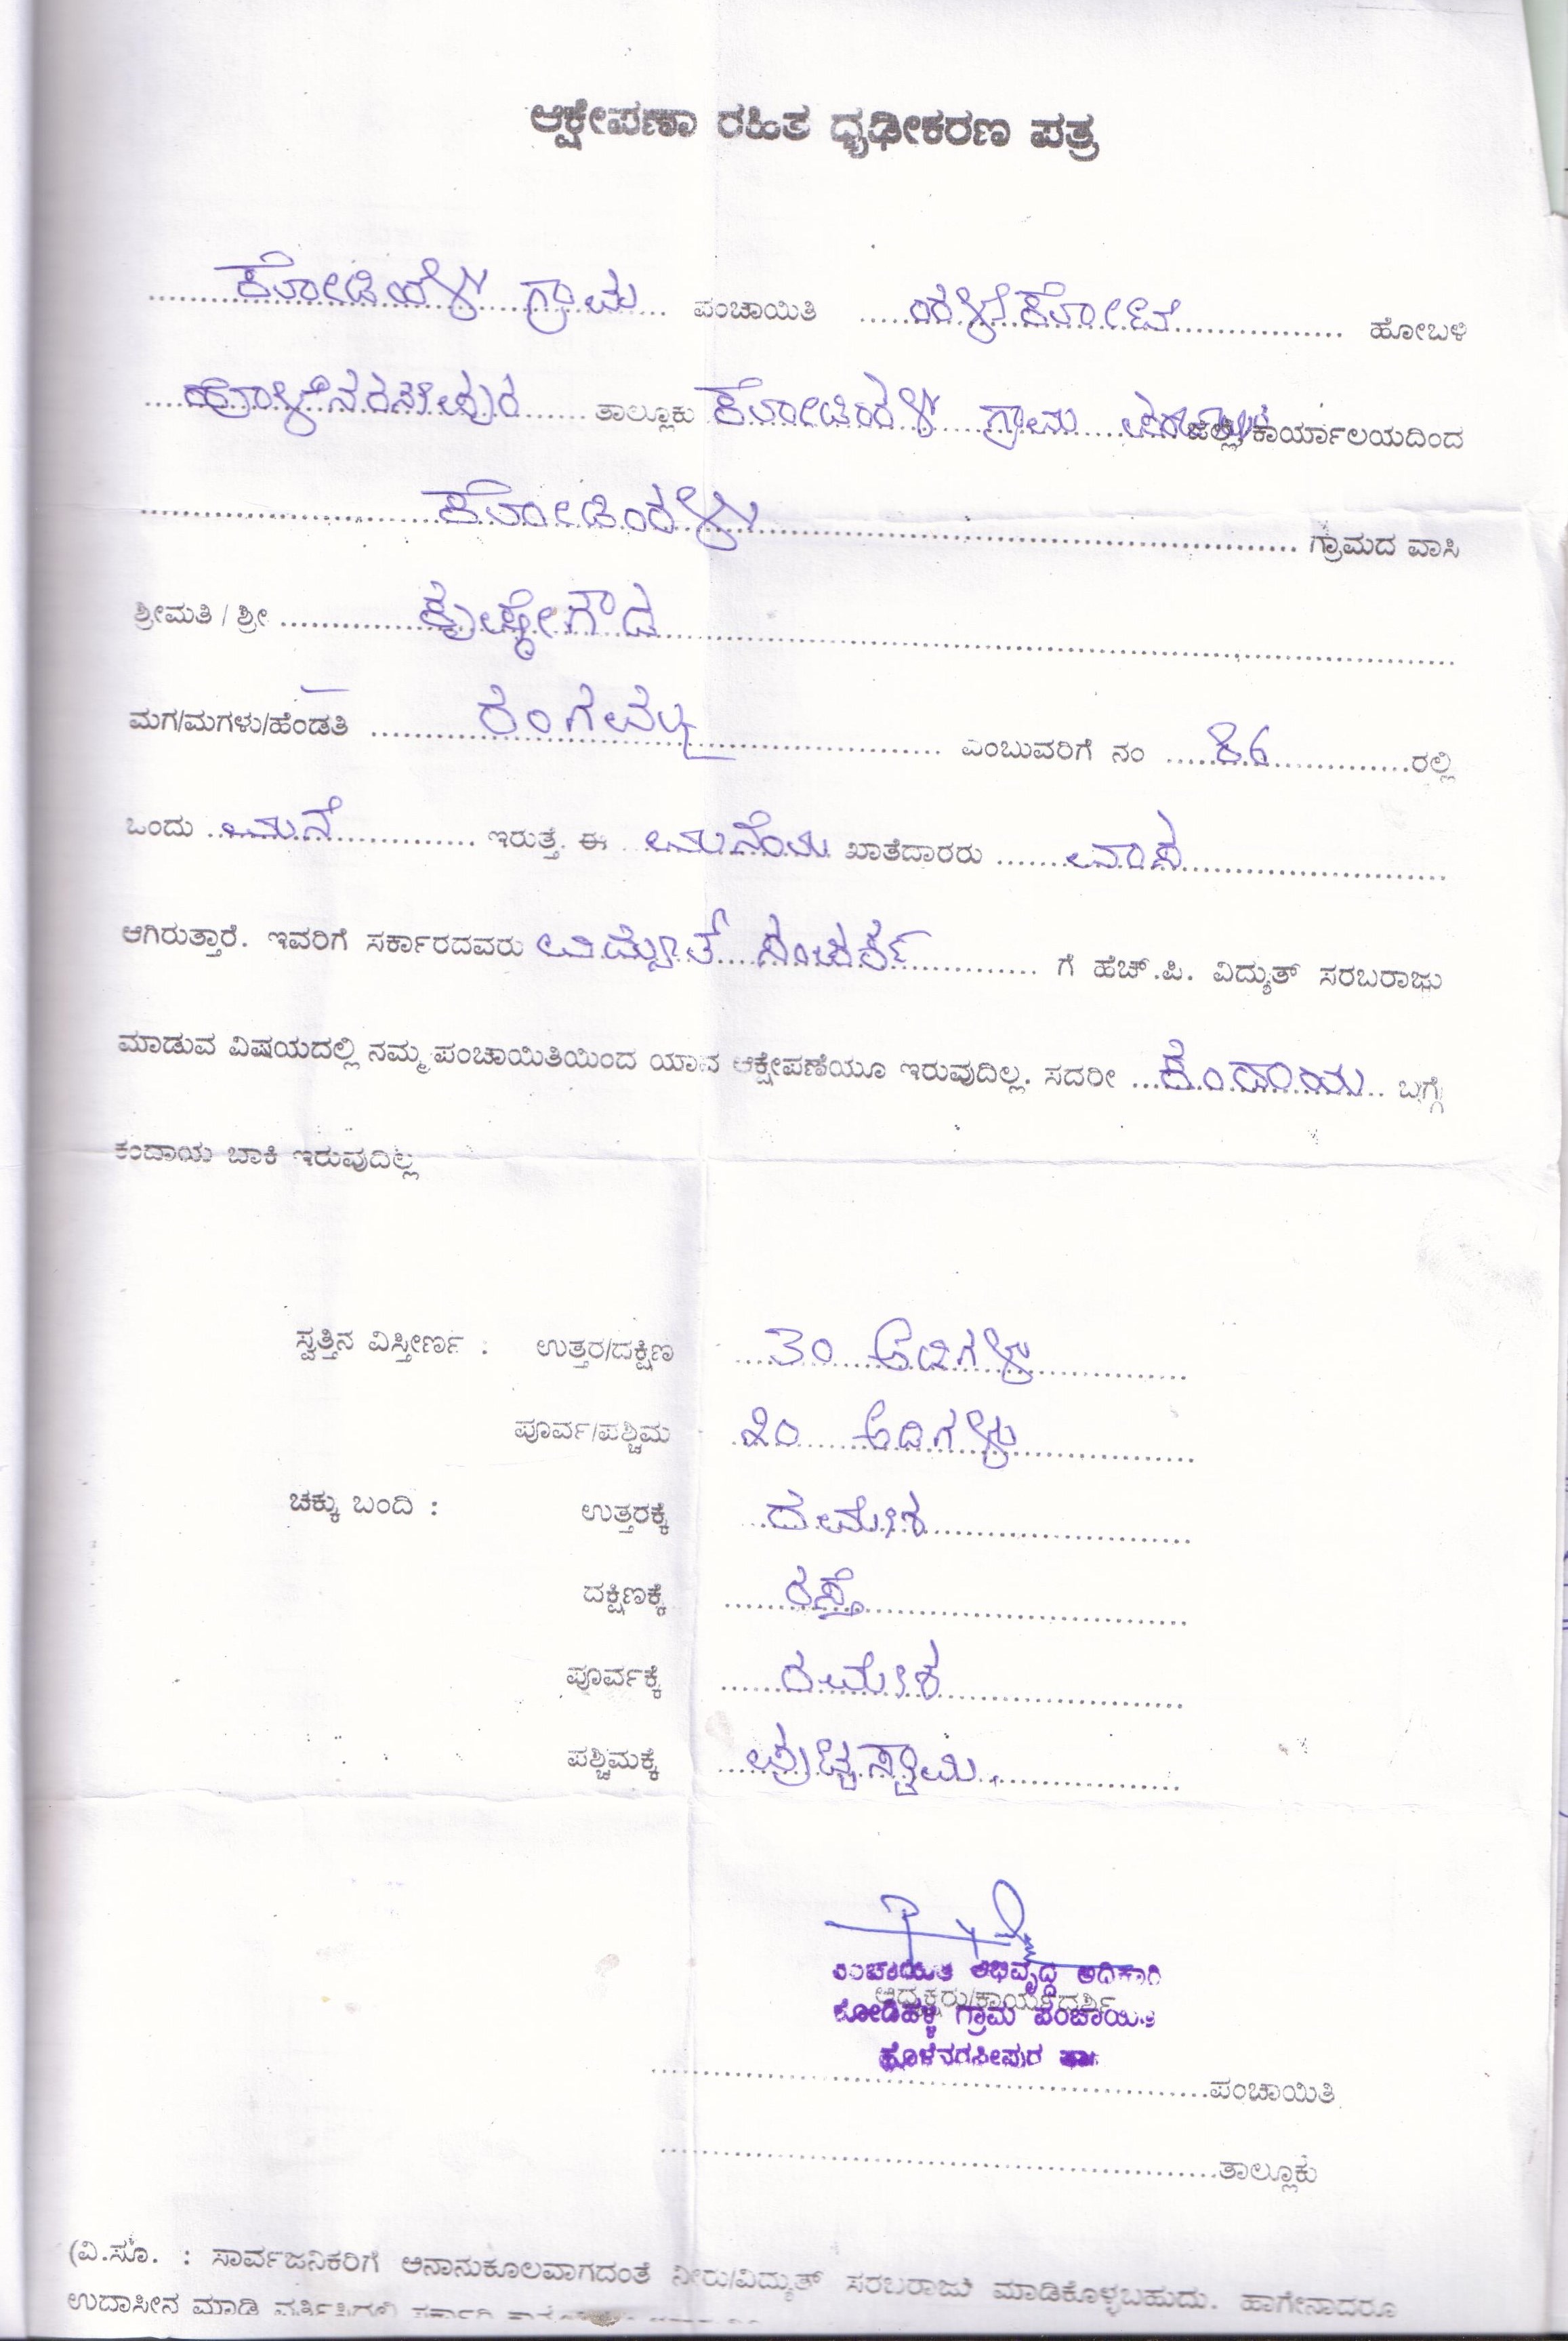 ಆಕ್ಷೇಪಣಾ ರಹಿತ ಧೃಢೀಕರಣ ಪತ್ರ
ಕೋಡಿಹಳ್ಳಿ ಗ್ರಾಮ ಪಂಚಾಯಿತಿ ಹಳ್ಳಿಮೈಸೂರು ಹೋಬಳಿ
ಹೊಳೆನರಸೀಪುರ ತಾಲ್ಲೂಕು ಕೋಡಿಹಳ್ಳಿ ಗ್ರಾಮ ಕಾರ್ಯಾಲಯದಿಂದ
ಕೋಡಿಹಳ್ಳಿ ಗ್ರಾಮದ ವಾಸಿ
ಶ್ರೀಮತಿ / ಶ್ರೀ ಕೃಷ್ಣೇಗೌಡ
ಮಗ/ಮಗಳು/ಹೆಂಡತಿ ಎಂಬುವರಿಗೆ ನಂ ರಲ್ಲಿ
ಒಂದು ಮನೆ ಇರುತ್ತೆ. ಈ ಮನೆಯ ಖಾತೆದಾರರು ವಾಸ
ಆಗಿರುತ್ತಾರೆ. ಇವರಿಗೆ ಸರ್ಕಾರದವರು ವಿದ್ಯುತ್ ಸಂಪರ್ಕ ಗೆ ಹೆಚ್.ಪಿ. ವಿದ್ಯುತ್ ಸರಬರಾಜು
ಮಾಡುವ ವಿಷಯದಲ್ಲಿ ನಮ್ಮ ಪಂಚಾಯಿತಿಯಿಂದ ಯಾವ ಆಕ್ಷೇಪಣೆಯೂ ಇರುವುದಿಲ್ಲ. ಸದರೀ ಕಂದಾಯ ಬಗ್ಗೆ
ಕಂದಾಯ ಬಾಕಿ ಇರುವುದಿಲ್ಲ
ಸ್ವತ್ತಿನ ವಿಸ್ತೀರ್ಣ : ಉತ್ತರ/ದಕ್ಷಿಣ ೩೦ ಅಡಿಗಳು
ಪೂರ್ವ/ಪಶ್ಚಿಮ ೨೦ ಅಡಿಗಳು
ಚಕ್ಕು ಬಂದಿ : ಉತ್ತರಕ್ಕೆ ರಮೇಶ
ದಕ್ಷಿಣಕ್ಕೆ ರಸ್ತೆ
ಪೂರ್ವಕ್ಕೆ ರಮೇಶ
ಪಶ್ಚಿಮಕ್ಕೆ ಪುಟ್ಟಸ್ವಾಮಿ
ಪಂಚಾಯಿತಿ ಅಭಿವೃದ್ಧಿ ಅಧಿಕಾರಿ
ಅಧ್ಯಕ್ಷರು/ಕಾರ್ಯದರ್ಶಿ
ಕೋಡಿಹಳ್ಳಿ ಗ್ರಾಮ ಪಂಚಾಯಿತಿ
ಹೊಳೆನರಸೀಪುರ ತಾ॥
ಪಂಚಾಯಿತಿ
ತಾಲ್ಲೂಕು
(ವಿ.ಸೂ. : ಸಾರ್ವಜನಿಕರಿಗೆ ಅನಾನುಕೂಲವಾಗದಂತೆ ನೀರು/ವಿದ್ಯುತ್ ಸರಬರಾಜು ಮಾಡಿಕೊಳ್ಳಬಹುದು. ಹಾಗೇನಾದರೂ
ಉದಾಸೀನ ಮಾಡಿ